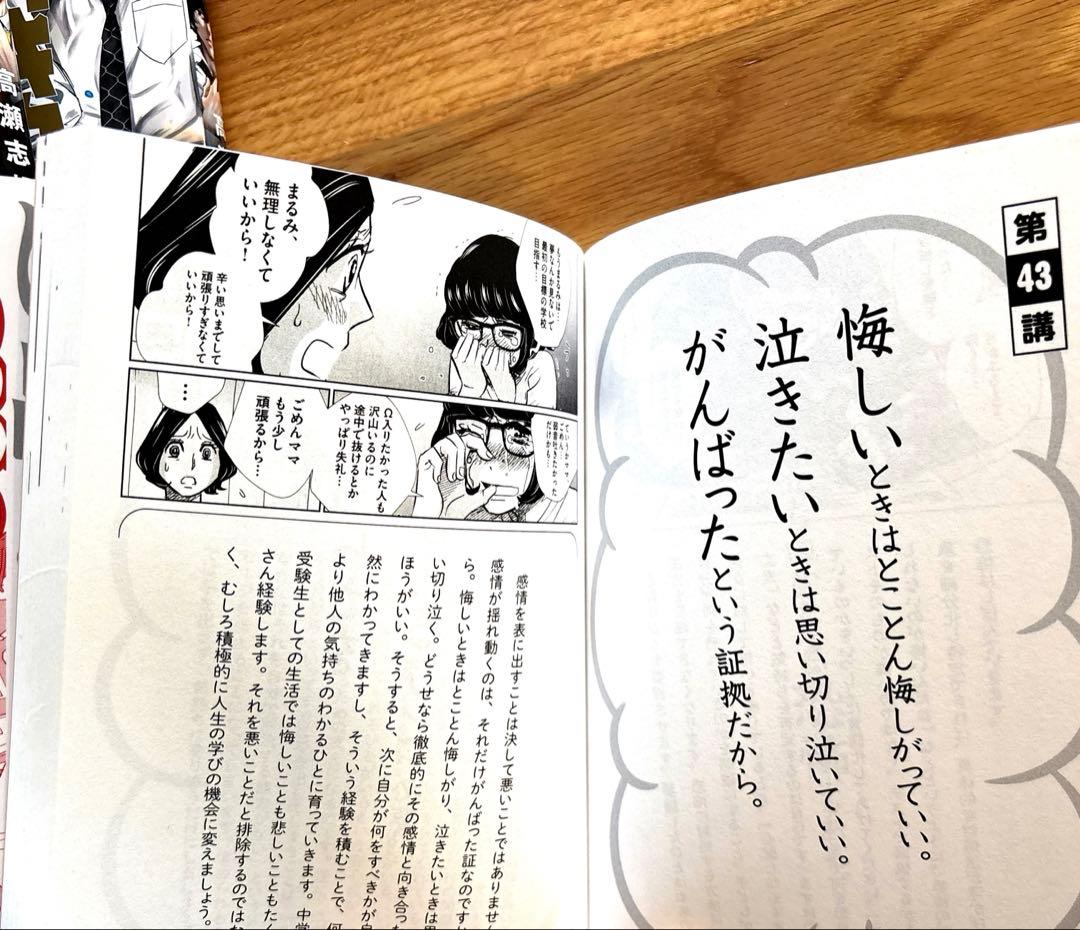 第
43
講
悔しいときはとことん悔しがっていい。
泣きたいときは思い切り泣いていい。
がんばったという証拠だから。
もうまるみは…
夢なんか見ないで
最初の目標の学校
目指す…
まるみ、
無理しなくて
いいから!
辛い思いまでして
頑張りすぎなくて
いいから!
ていうかササ
ごめん…
弱音吐きたかった
だけかも…
Ω入りたかった人も
沢山いるのに
途中で抜けるとか
やっぱり失礼…
ごめんママ
もう少し
頑張るから…
…
感情を表に出すことは決して悪いことではありませ
感情が揺れ動くのは、それだけがんばった証なのです
ら。悔しいときはとことん悔しがり、泣きたいときは思
い切り泣く。どうせなら徹底的にその感情と向き合った
ほうがいい。そうすると、次に自分が何をすべきかが自
然にわかってきますし、そういう経験を積むことで、何
より他人の気持ちのわかるひとに育っていきます。中学
受験生としての生活では悔しいことも悲しいこともたく
さん経験します。それを悪いことだと排除するのではな
く、むしろ積極的に人生の学びの機会に変えましょう。
高瀬志